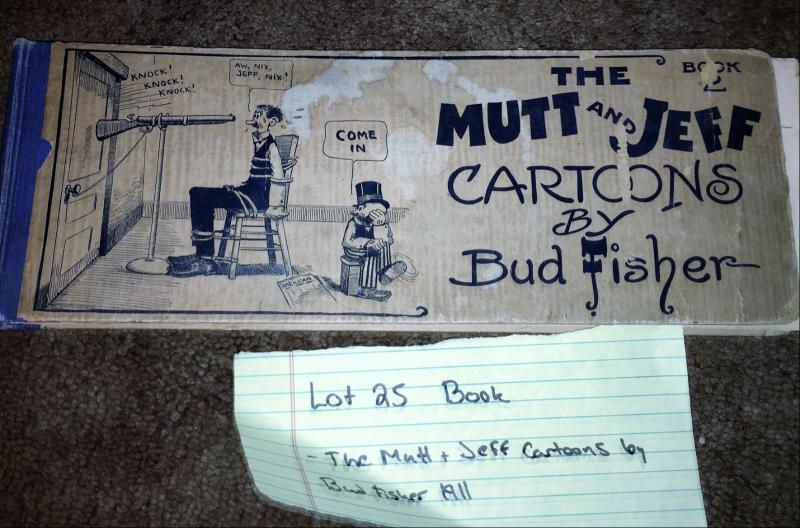 KNOCK!
KNOCK!
KNOCK!
AW, NIX,
JEFF, NIX!
COME
IN
BOOK
2
THE
MUTT AND JEFF
CARTOONS
BY
Bud Fisher
Lot 25 Book
- The Mutt + Jeff Cartoons by
Bud Fisher 1911